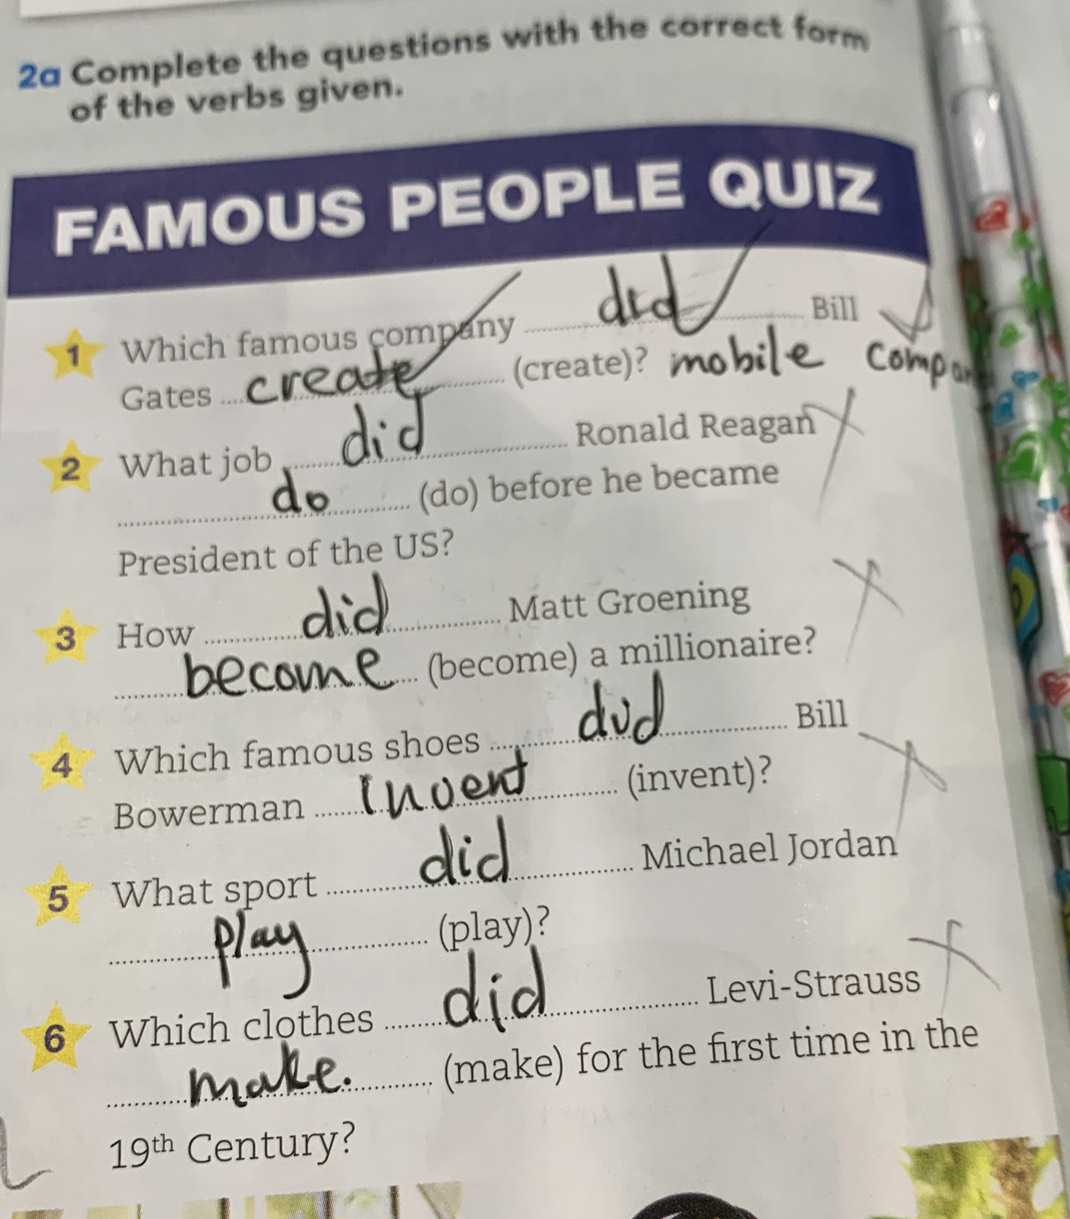 2a Complete the questions with the correct form
of the verbs given.
FAMOUS PEOPLE QUIZ
1 Which famous company did Bill
Gates create (create)? mobile compan
2 What job did Ronald Reagan
do (do) before he became
President of the US?
3 How did Matt Groening
become (become) a millionaire?
4 Which famous shoes did Bill
Bowerman invent (invent)?
5 What sport did Michael Jordan
play (play)?
6 Which clothes did Levi-Strauss
make. (make) for the first time in the
19th Century?